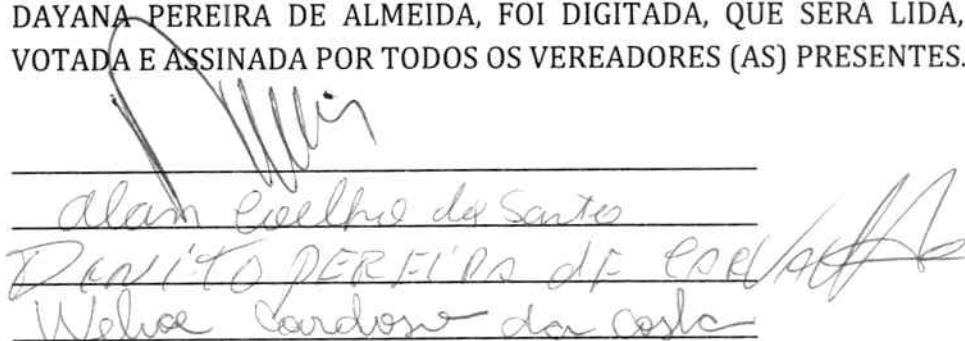 DAYANA PEREIRA DE ALMEIDA, FOI DIGITADA, QUE SERÁ LIDA,
VOTADA E ASSINADA POR TODOS OS VEREADORES (AS) PRESENTES.
Alam Coelho dos Santos
DENITO PEREIRA DE CARVALHO
Cardoso da Costa